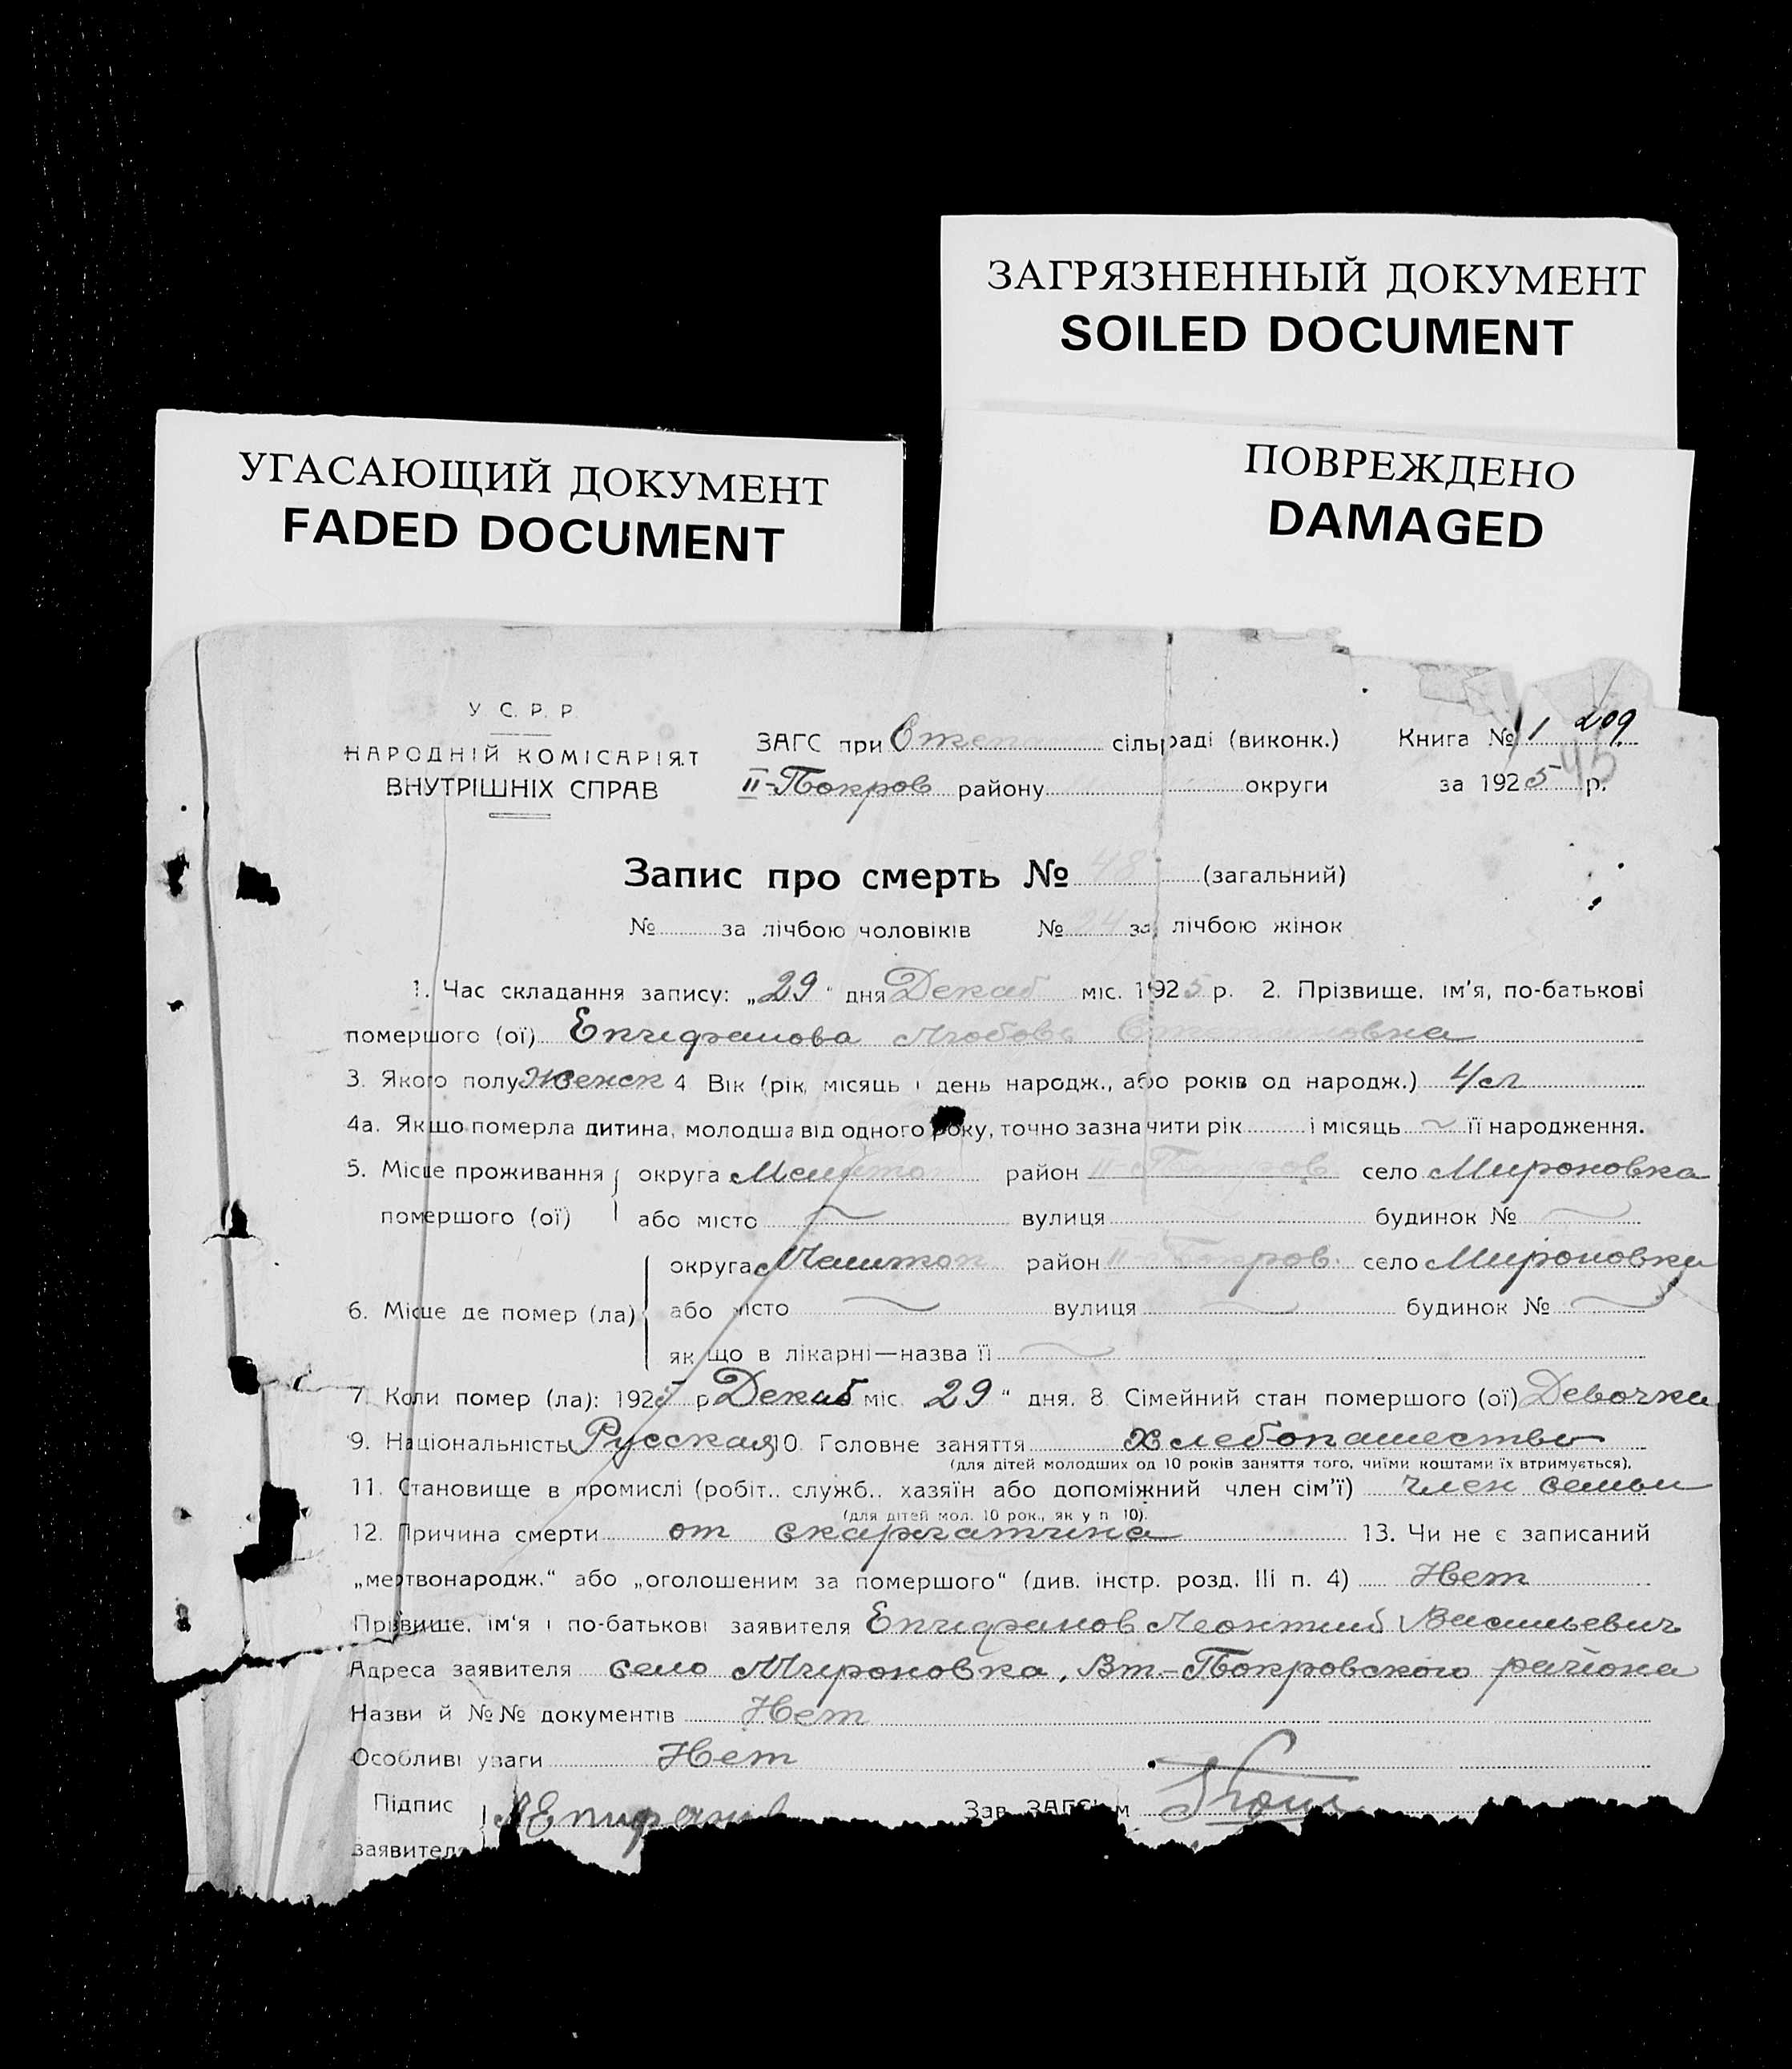 ЗАГРЯЗНЕННЫЙ ДОКУМЕНТ
SOILED DOCUMENT
УГАСАЮЩИЙ ДОКУМЕНТ
FADED DOCUMENT
ПОВРЕЖДЕНО
DAMAGED
У. С. Р. Р.
НАРОДНІЙ КОМІСАРІЯТ
ВНУТРІШНІХ СПРАВ
ЗАГС при сільраді (виконк.)
II-Покров району округи
Книга № 1 209
за 1925 р. 45
Запис про смерть № 48 (загальний)
№ за лічбою чоловіків № 24 за лічбою жінок
1. Час складання запису: „29“ дня Декаб міс. 1925 р. 2. Прізвище, ім'я, по-батькові
померщого (ої) Епифанова Любовь Степановна
3. Якого полу Женск 4 Вік (рік, місяць і день народж., або років од народж.) 4
4а. Якщо померла дитина, молодша від одного року, точно зазначити рік і місяць ~ її народження.
5. Місце проживання округа Мелитоп район II-Покров село Мироновка
померщого (ої) або місто ~ вулиця будинок № ~
округа Мелитоп район II-Покров. село Мироновка
6. Місце де помер (ла) або місто ~ вулиця ~ будинок № ~
як що в лікарні—назва її ~
7. Коли помер (ла): 1925 р Декаб міс. 29“ дня. 8. Сімейний стан помершого (ої) Девочка
9. Національність Русская 10. Головне заняття Хлебопашество
(для дітей молодших од 10 років заняття того, чиїми коштами їх втримується).
11. Становище в промислі (робіт., служб., хазяїн або допоміжний член сім'ї) член семьи
(для дітей мол. 10 рок., як у п 10).
12. Причина смерти от скарлатина 13. Чи не є записаний
„мертвонародж.“ або „оголошеним за помершого“ (див. інстр. розд. III п. 4) Нет
Прізвище, ім'я і по-батькові заявителя Епифанов Леонтий Васильевич
Адреса заявителя село Мироновка, Вт.-Покровского района
Назви й №№ документів Нет
Особливі уваги Нет
Підпис ЛЕпифанов Зав. ЗАГС'ом
заявителя